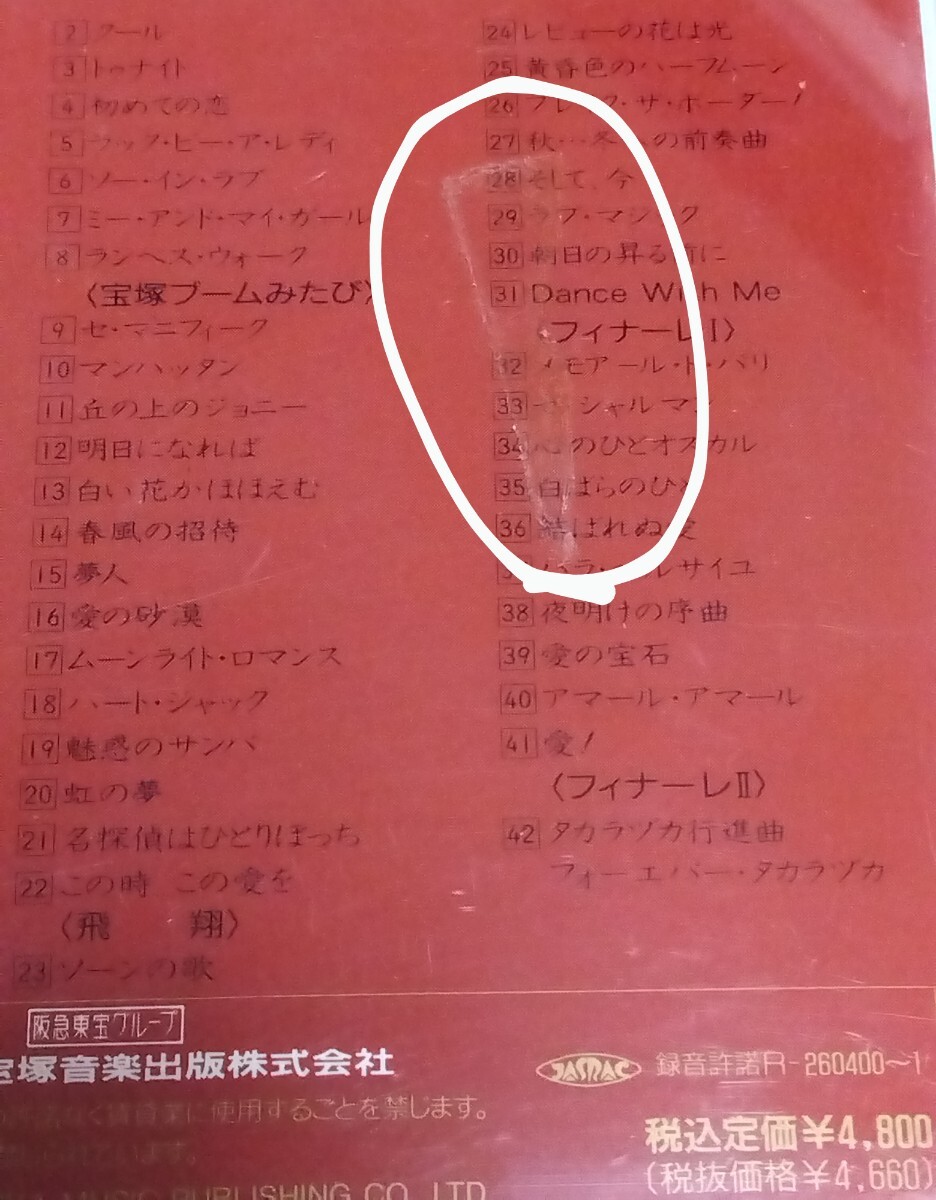 2 クール
3 トゥナイト
4 初めての恋
5 ラック・ビー・ア・レディ
6 ソー・イン・ラブ
7 ミー・アンド・マイ・ガール
8 ランベス・ウォーク
〈宝塚ブームみたび〉
9 セ・マニフィーク
10 マンハッタン
11 丘の上のジョニー
12 明日になれば
13 白い花がほほえむ
14 春風の招待
15 夢人
16 愛の砂漠
17 ムーンライト・ロマンス
18 ハート・ジャック
19 魅惑のサンバ
20 虹の夢
21 名探偵はひとりぼっち
22 この時 この愛を
〈飛 翔〉
23 ソーンの歌
24 レビューの花は光
25 黄昏色のハーフムーン
26 ブレイク・ザ・ボーダー!
27 秋…冬への前奏曲
28 そして、今
29 ラブ・マジック
30 朝日の昇る前に
31 Dance With Me
〈フィナーレI〉
32 メモアール・ド・パリ
33 セ シャルマン
34 心のひとオスカル
35 白ばらのひと
36 結ばれぬ愛
ベルサイユ
38 夜明けの序曲
39 愛の宝石
40 アマール・アマール
41 愛!
〈フィナーレII〉
42 タカラヅカ行進曲
フォーエバー・タカラヅカ
阪急東宝グループ
宝塚音楽出版株式会社
JASRAC 録音許諾R-260400~1
なく賃貸業に使用することを禁じます。
税込定価¥4,800
(税抜価格¥4,660)
MUSIC PUBLISHING CO., LTD